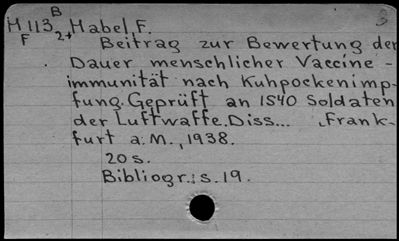 B
M 113 2+ Mabel F.
F
Beitrag zur Bewertung der
Dauer menschlicher Vaccine-
immunität nach Kuhpockenimp-
fung. Geprüft an 1540 Soldaten
der Luftwaffe. Diss... Frank-
furt a. M., 1938.
20 s.
Bibliogr.: s. 19.